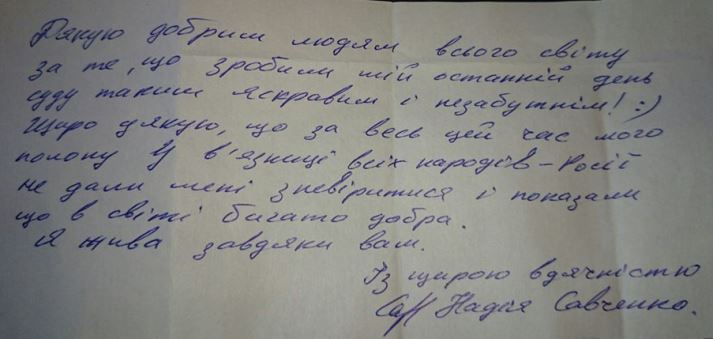 Дякую добрим людям всього світу
за те, що зробили мій останній день
суду таким яскравим і незабутнім! :)
Щиро дякую, що за весь цей час мого
полону у в'язниці всіх народів – Росії
не дали мені зневіритися і показали
що в світі багато добра.
Я жива завдяки вам.
Із щирою вдячністю
Надія Савченко.